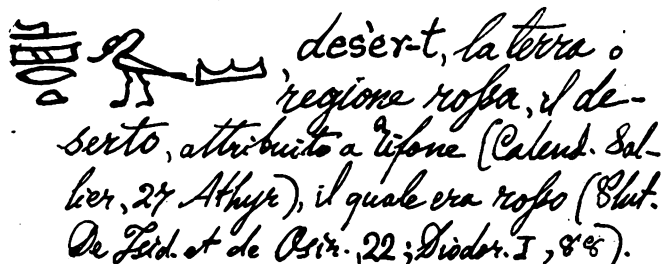 deśer-t, la terra o
regione roſsa, il de-
serto, attribuito a Tifone (Calend. Sal-
lier, 27 Athyr), il quale era roſso (Plut.
De Isid. et de Osir., 22; Diodor. I, 88).